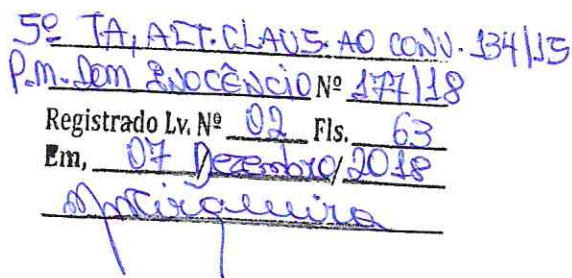 5º TA, ALT. CLAUS. AO CONV. 134/15
P.M. DOM INOCÊNCIO Nº 177/18
Registrado Lv. Nº 02 Fls. 63
Em, 07 / Dezembro / 2018